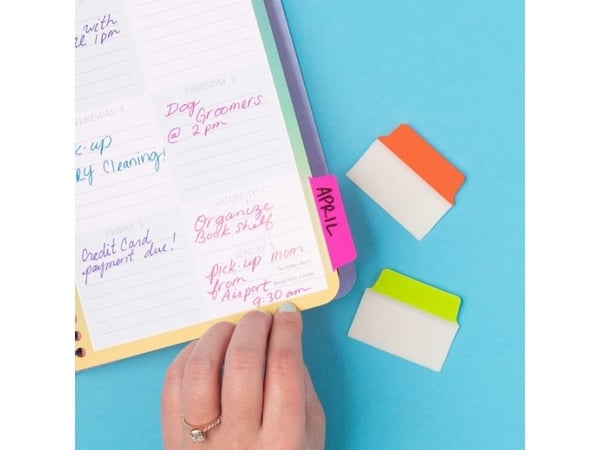 with
1pm
THURSDAY 2
Dog
Groomers
@ 2pm
k-up
RY Cleaning!
FRIDAY 3
Credit Card
payment due!
SATURDAY
Organize
Book shelf
SUNDAY
pick-up mom
from
Airport
9:30 am
APRIL